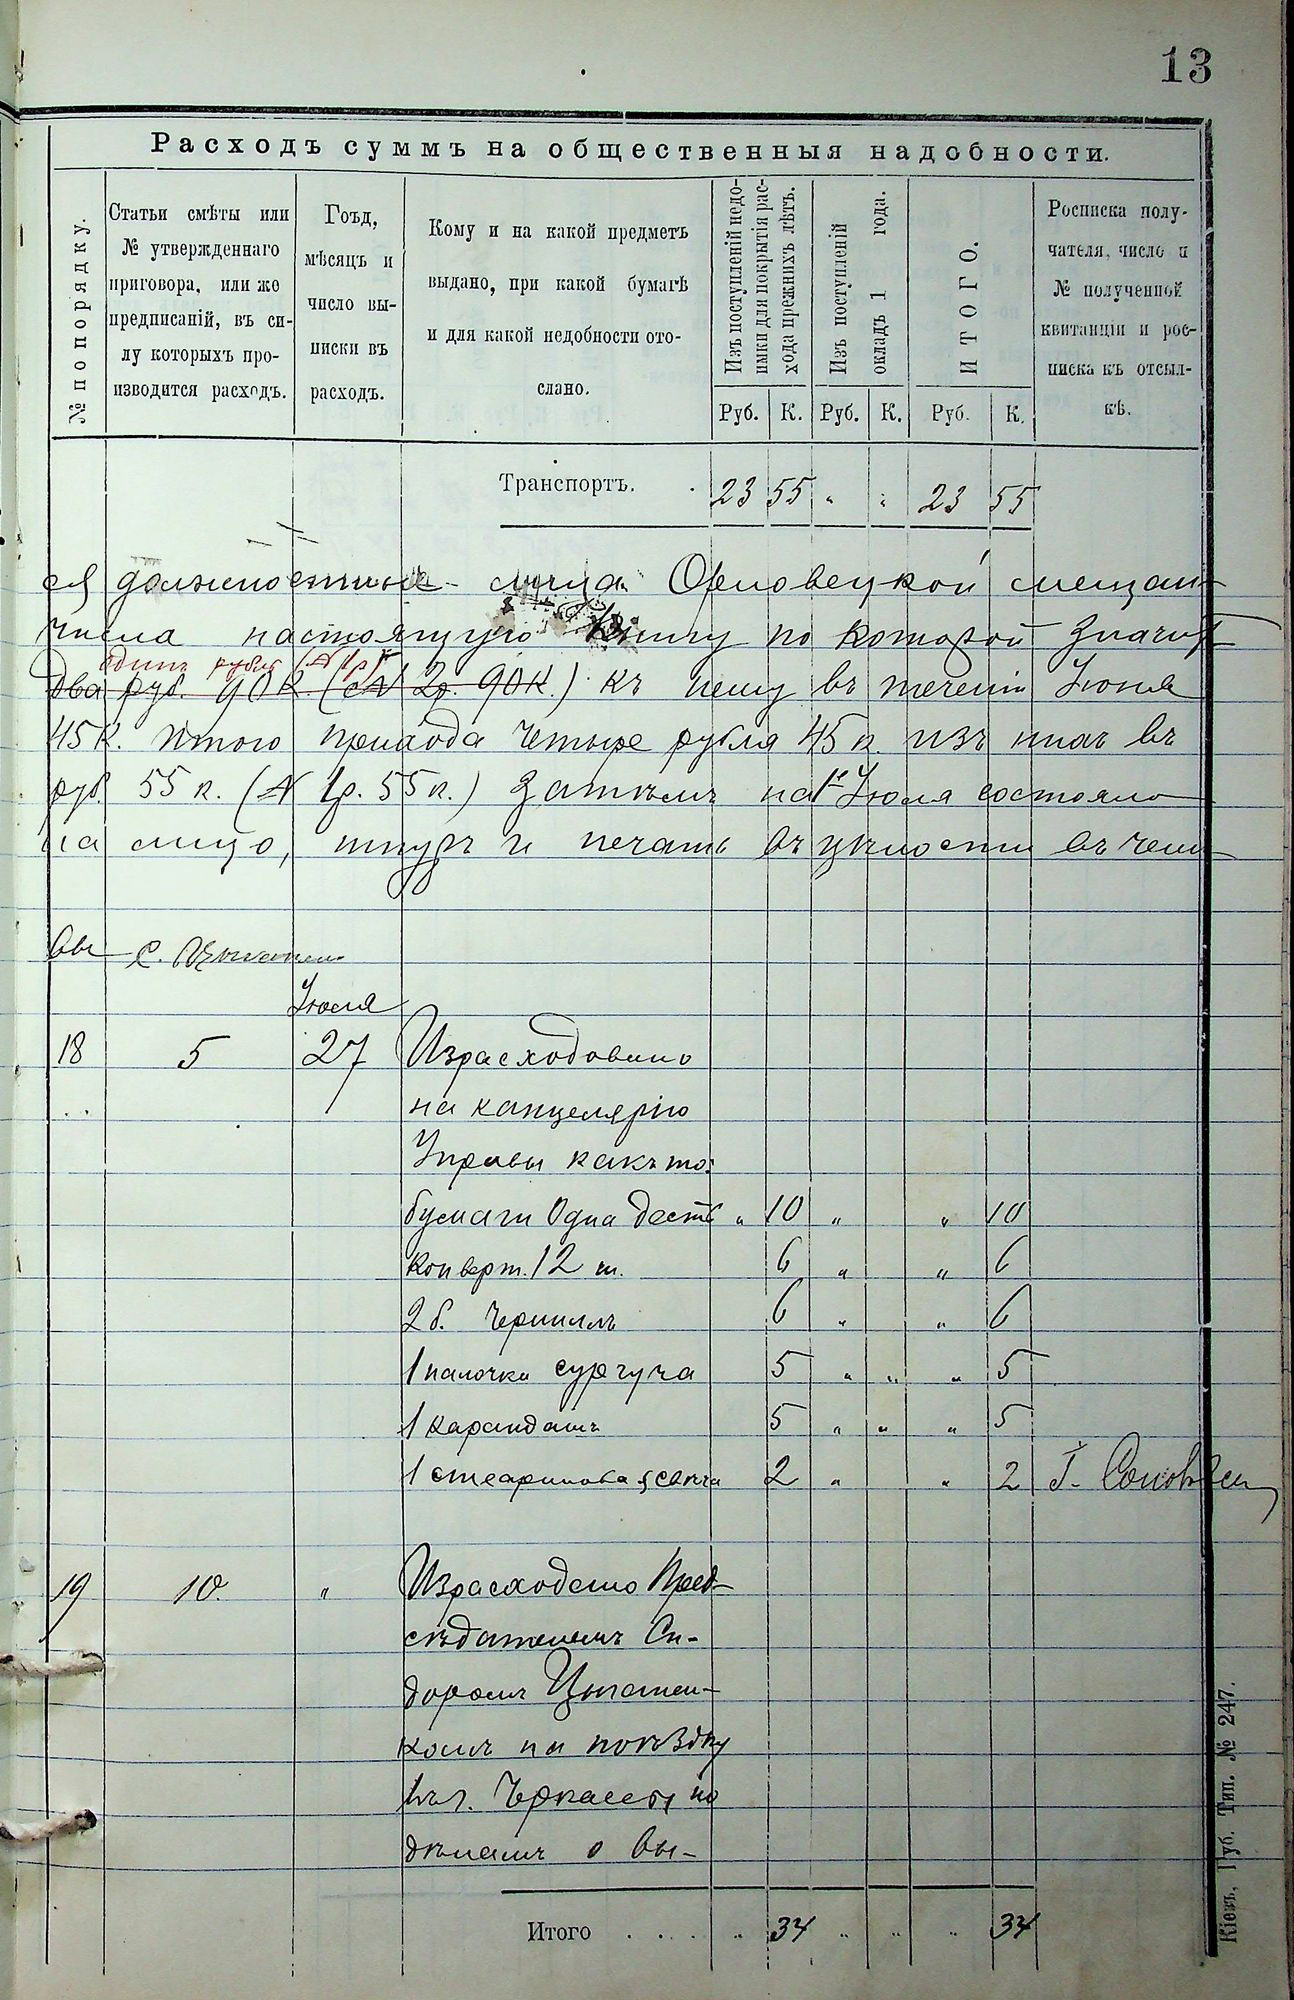 13
Расходъ суммъ на общественныя надобности.
№ по порядку.
Статьи смѣты или
№ утвержденнаго
приговора, или же
предписаній, въ си-
лу которыхъ про-
изводится расходъ.
Гоъд,
мѣсяцъ и
число вы-
писки въ
расходъ.
Кому и на какой предметъ
выдано, при какой бумагѣ
и для какой недобности ото-
слано.
Изъ поступленій недо-
имки для покрытія рас-
хода прежнихъ лѣтъ.
Изъ поступленій
окладъ 1 года.
ИТОГО.
Росписка полу-
чателя, число и
№ полученной
квитанціи и рос-
писка къ отсыл-
кѣ.
Руб. К. Руб. К. Руб. К.
Транспортъ. 23 55 " " 23 55
должностные лица Орловецкой мещан-
числа настоящую Книгу по которой значит
одинъ рубль
два руб. 90 К. (2р. 90 К.) къ нему въ теченіи Іюня
45 К. Итого прихода четыре рубля 45 к. изъ нихъ въ
руб. 55 к. (1р. 55 к.) Затѣмъ на 1е Іюля состояло
на лицо, шнуръ и печать въ цѣлости въ чем
вы С. Цыганен
Іюля
18 5 27 Израсходовано
на канцелярію
Управы какъ то:
бумаги Одна десть " 10 " " 10
конверт. 12 ш. 6 " " 6
2 б. Чернилъ 6 " " 6
1 палочка сургуча 5 " " " 5
1 карандашъ 5 " " " 5
1 стеаринова я свѣча 2 " " 2
19 10. " Израсходено Пред-
сѣдателемъ Си-
доромъ Цыганен-
комъ на поѣздку
въ г. Черкассы по
дѣламъ о вы-
Итого . . . . " 34 " " " 34
Кіевъ, Губ. Тип. № 247.